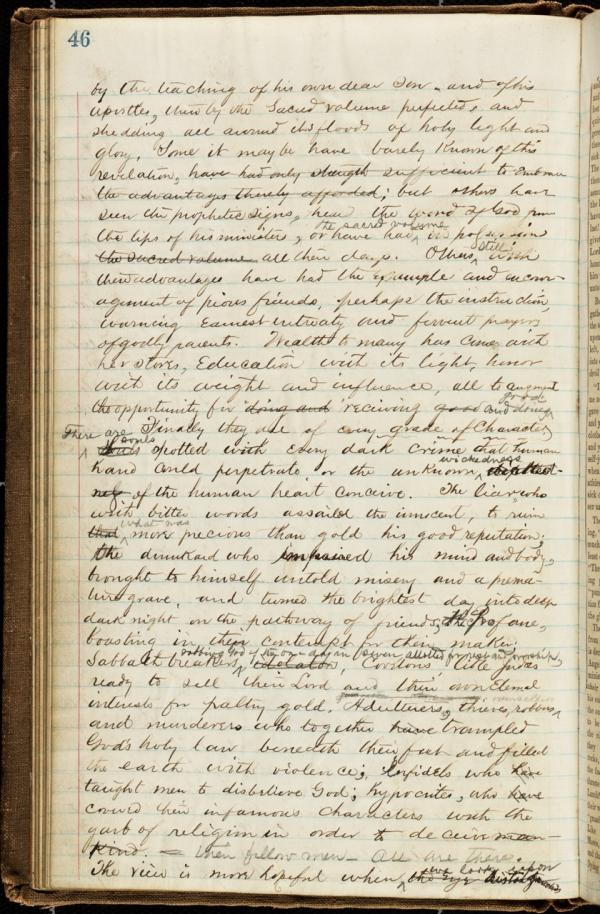 46
by the teaching of his own dear Son and of his
apostles, then by the Sacred volume perfected, and
shedding all around its floods of holy light and
glory. Some it may be have barely known of this
revelation, have had only strength sufficient to embrace
the advantages thereby afforded; but others have
seen the prophetic signs, hear the word of God from
the sacred volume
the lips of his ministers, or have had in possession
the sacred volume all their days. Others still with
these advantages have had the example and encour-
agement of pious friends, perhaps the instruction,
warning earnest entreaty and fervent prayers
of godly parents. Wealth to many has come with
her stores, Education with its light, honor
with its weight and influence, all to augment
good
the opportunity for doing and receiving good and doing
Finally they are of every grade of Character,
There are souls
spotted with every dark crime that human
wickedness
hand could perpetrate or the unknown
of the human heart conceive. The liar who
with bitter words assailed the innocent, to ruin
what was
that more precious than gold his good reputation;
the drunkard who impaired his mind and body,
brought to himself untold misery and a prema-
ture grave, and turned the brightest day into deep
dark night on the pathway of friends; the Profane,
boasting in their contempt for their maker;
Sabbath breakers, idolators, Covetous, like Judas
ready to sell their Lord and their own eternal
interests for paltry gold. Adulterers, thieves, robbers,
and murderers who together have trampled
God's holy law beneath their feet and filled
the earth with violence; Infidels who have
taught men to disbelieve God; hypocrites, who have
covered their infamous characters with the
garb of religion in order to deceive man-
kind. their fellow men - All are there.
we look upon
The view is more hopeful when the eye